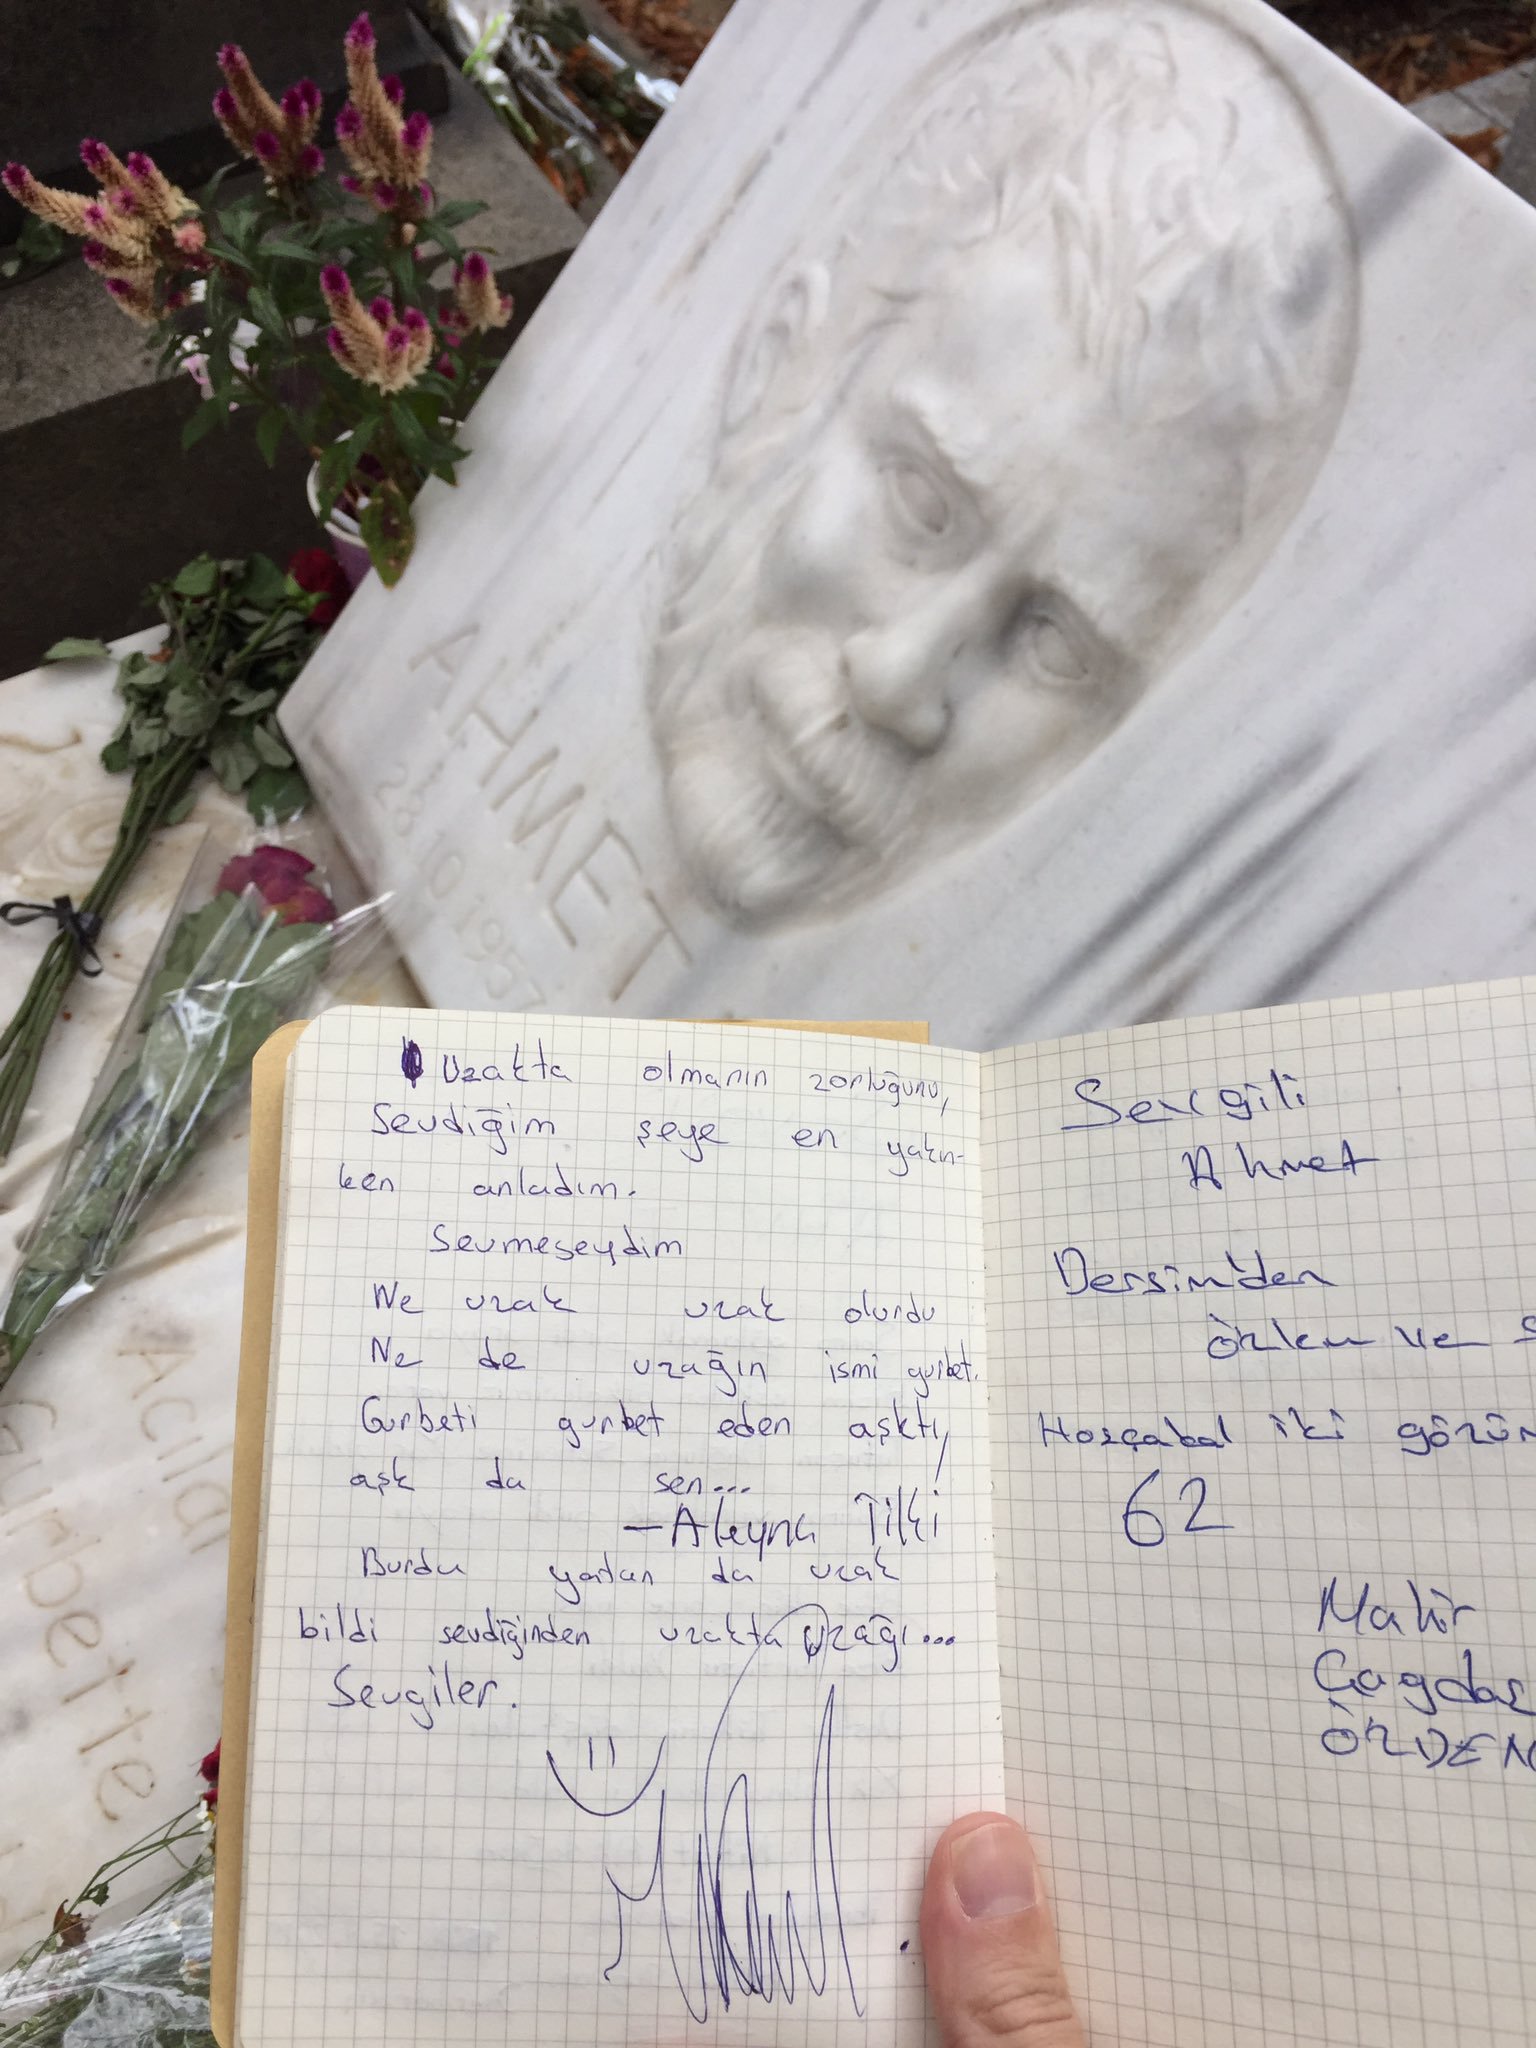 AHMET
28.10.1957
Acılar
Gurbette
Uzakta olmanın zorluğunu,
Sevdiğim şeye en yakın-
ken anladım.
Sevmeseydim
Ne uzak uzak olurdu
Ne de uzağın ismi gurbet.
Gurbeti gurbet eden aşktı,
aşk da sen...
—Aleyna Tilki
Burdu yardan da uzak
bildi sevdiğinden uzakta uzağı...
Sevgiler.
Sevgili
Ahmet
Dersim'den
özlem ve s
Hoşçakal iki gözüm
62
Mahir
Çağdaş
ÖZDEN